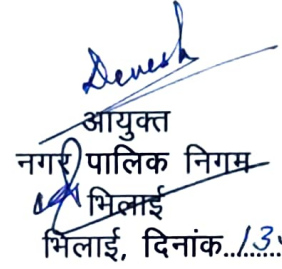 Devesh
आयुक्त
नगर पालिक निगम
भिलाई
भिलाई, दिनांक...13.